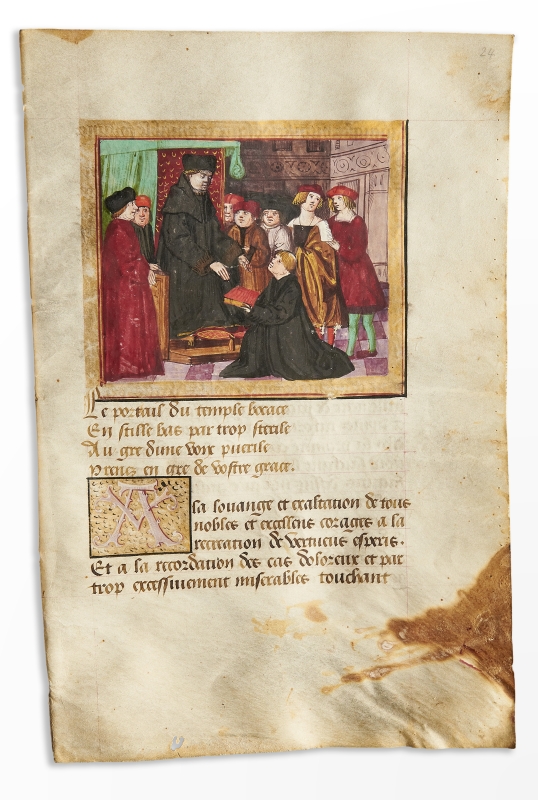 24
Le portail du temple bocace
En stille bas par trop sterile
Au gre dune voix puerile
Prenez en gre de vostre grace.
A la louange et exaltation de tous
nobles et excellens corages a la
recreation de vertueus esperis.
Et a la recordation des cas doloreux et par
trop excessivement miserables touchant